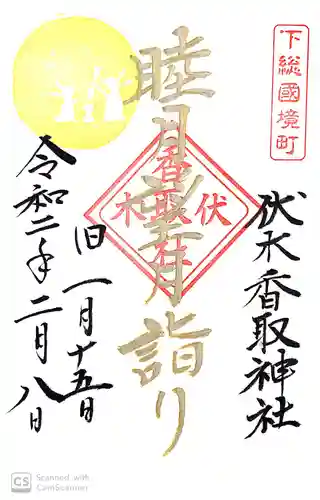 下総國境町
伏木香取神社
睦月望月詣り
香取社
伏
木
旧一月十五日
令和二年二月八日
CS Scanned with
CamScanner